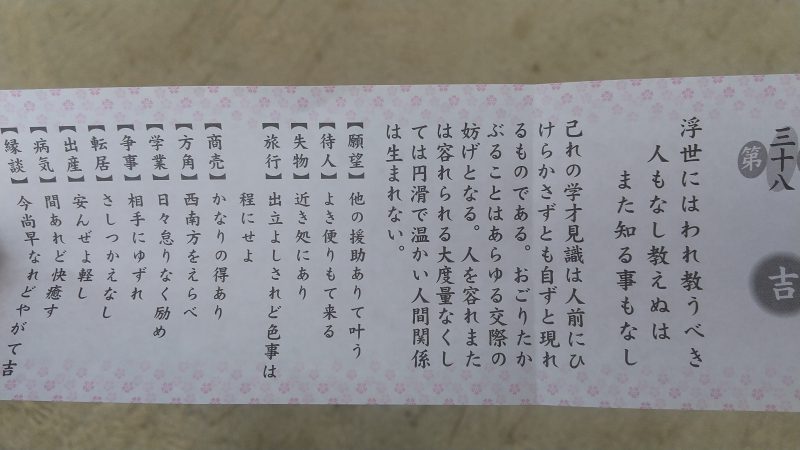 第三十八
吉
浮世にはわれ教うべき
人もなし教えぬは
また知る事もなし
己れの学才見識は人前にひ
けらかさずとも自ずと現れ
るものである。おごりたか
ぶることはあらゆる交際の
妨げとなる。人を容れまた
は容れられる大度量なくし
ては円滑で温かい人間関係
は生まれない。
【願望】他の援助ありて叶う
【待人】よき便りもて来る
【失物】近き処にあり
【旅行】出立よしされど色事は
程にせよ
【商売】かなりの得あり
【方角】西南方をえらべ
【学業】日々怠りなく励め
【争事】相手にゆずれ
【転居】さしつかえなし
【出産】安んぜよ軽し
【病気】間あれど快癒す
【縁談】今尚早なれどやがて吉